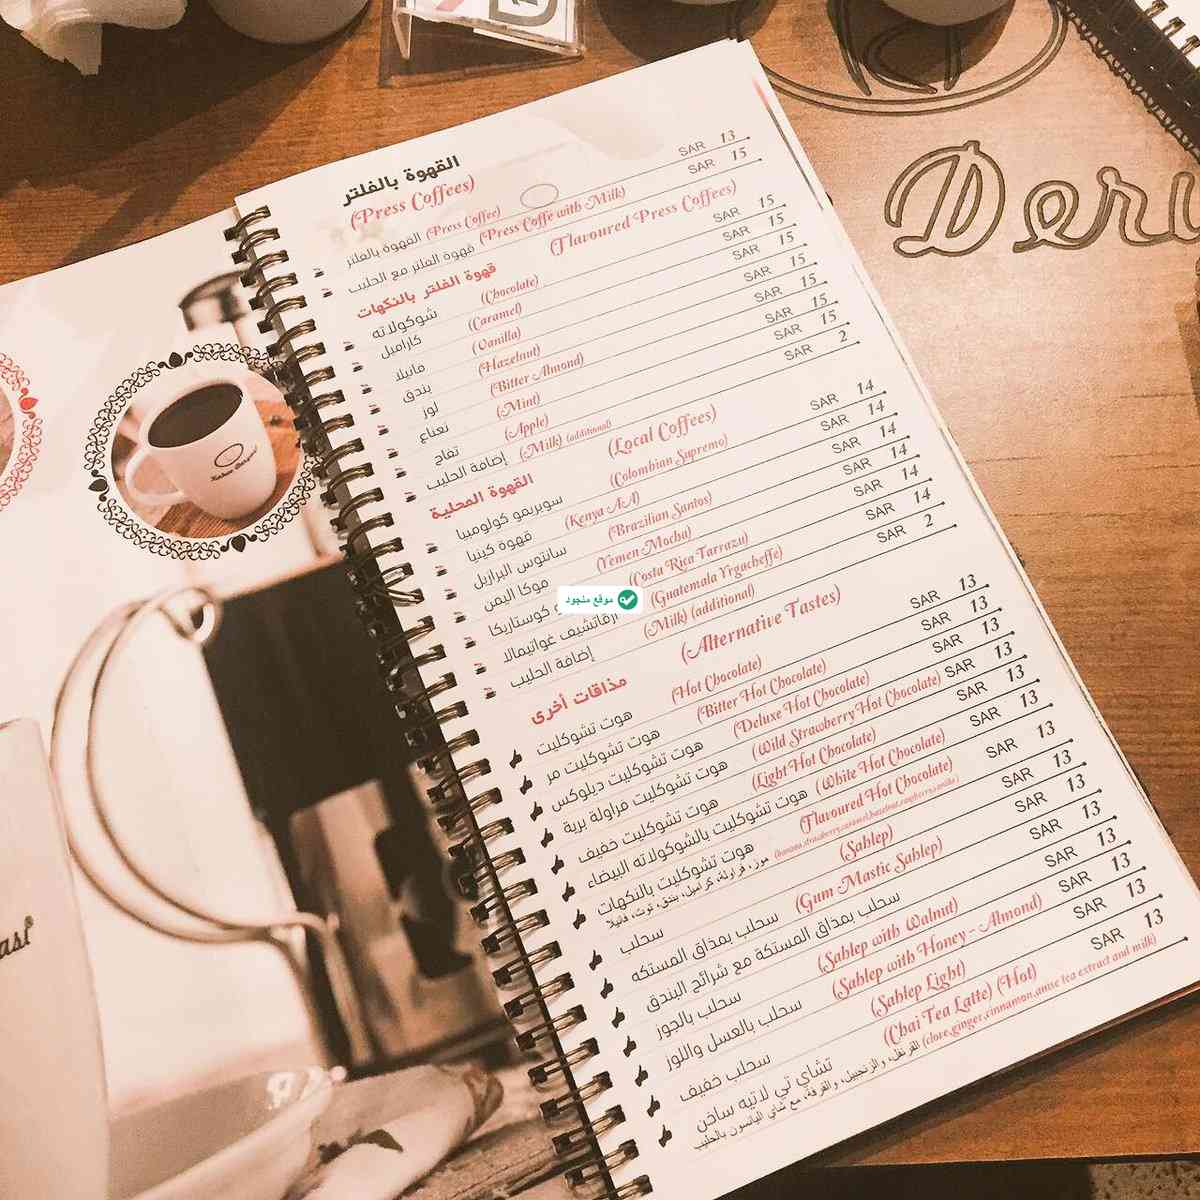 القهوة بالفلتر
(Press Coffees)
القهوة بالفلتر (Press Coffee) SAR 13
قهوة الفلتر مع الحليب (Press Coffe with Milk) SAR 15
قهوة الفلتر بالنكهات (Flavoured Press Coffees)
شوكولاته (Chocolate) SAR 15
كاراميل (Caramel) SAR 15
فانيلا (Vanilla) SAR 15
بندق (Hazelnut) SAR 15
لوز (Bitter Almond) SAR 15
نعناع (Mint) SAR 15
تفاح (Apple) SAR 15
إضافة الحليب (Milk) (additional) SAR 2
القهوة المحلية (Local Coffees)
سوبريمو كولومبيا (Colombian Supremo) SAR 14
قهوة كينيا (Kenya AA) SAR 14
سانتوس البرازيل (Brazilian Santos) SAR 14
موكا اليمن (Yemen Mocha) SAR 14
كوستاريكا (Costa Rica Tarrazu) SAR 14
ارقاتشيف غواتيمالا (Guatemala Yrgacheffe) SAR 14
إضافة الحليب (Milk) (additional) SAR 2
مذاقات أخرى (Alternative Tastes)
هوت تشوكليت (Hot Chocolate) SAR 13
هوت تشوكليت مر (Bitter Hot Chocolate) SAR 13
هوت تشوكليت ديلوكس (Deluxe Hot Chocolate) SAR 13
هوت تشوكليت فراولة برية (Wild Strawberry Hot Chocolate) SAR 13
هوت تشوكليت خفيف (Light Hot Chocolate) SAR 13
هوت تشوكليت بالشوكولاته البيضاء (White Hot Chocolate) SAR 13
هوت تشوكليت بالنكهات (Flavoured Hot Chocolate) SAR 13
موز، فراولة، كراميل، بندق، توت، فانيلا (banana,strawberry,caramel,hazelnut,raspberry,vanilla)
سحلب (Sahlep) SAR 13
سحلب بمذاق المستكه (Gum Mastic Sahlep) SAR 13
سحلب بمذاق المستكة مع شرائح البندق SAR 13
سحلب بالجوز (Sahlep with Walnut) SAR 13
سحلب بالعسل واللوز (Sahlep with Honey - Almond) SAR 13
سحلب خفيف (Sahlep Light) SAR 13
تشاي تي لاتيه ساخن (Chai Tea Latte) (Hot) SAR 13
القرنفل، والزنجبيل، والقرفة، مع شاي اليانسون بالحليب (clove,ginger,cinnamon,anise tea extract and milk)
موقع منجود
Deru
asi